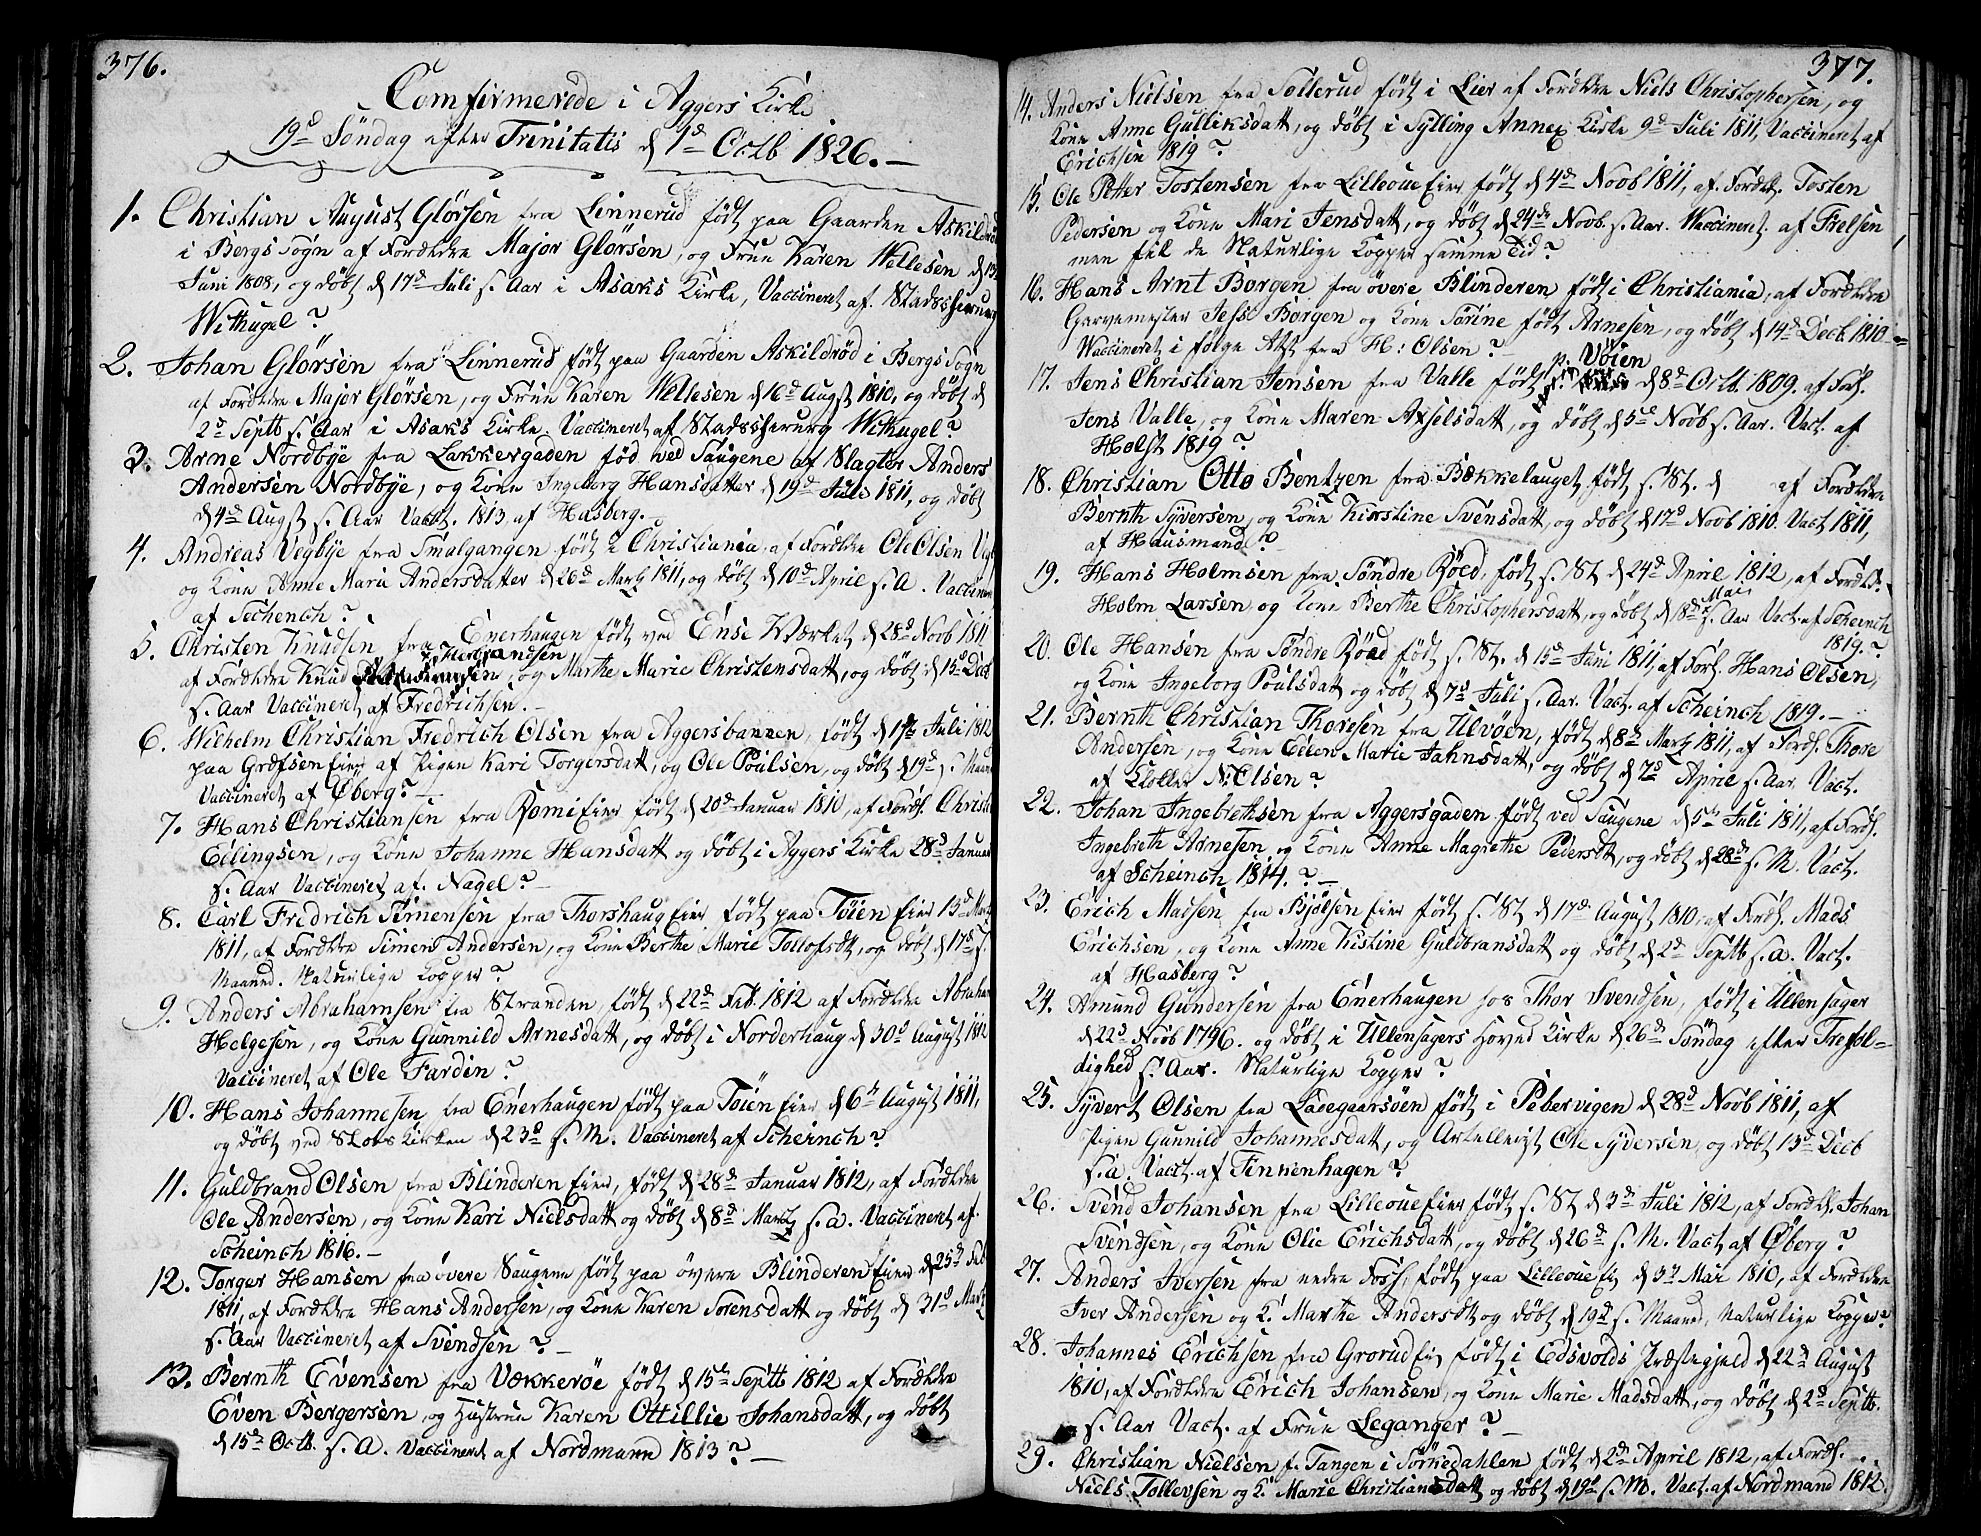 376.
Comfirmerede i Aggers Kirke
19de Söndag efter Trinitatis d 1de Octb 1826.—
1. Christian August Glörsen fra Linnerud födt paa Gaarden Askildröd
i Bergs Sogn af Forældre Major Glörsen, og Frue Karen Wellesen d 13
Juni 1808, og döbt d 17de Juli s. Aar i Asaks Kirke, Vaccineret af Stadschirurg
Withugel?
2. Johan Glörsen fra Linnerud födt paa Gaarden Askildröd i Bergs Sogn
af Forældre Major Glörsen, og Frue Karen Wellesen d 16de Augst 1810, og döbt d
2de Septb s. Aar i Asaks Kirke. Vaccineret af Stadschirurg Withugel?
3. Arne Nordbye fra Lakkergaden föd ved Saugene af Slagter Anders
Andersen Nordbye, og Kone Ingeborg Hansdatter d 19de Juli 1811, og döbt
d 4de Augst s. Aar Vacct. 1813 af Hasberg.—
4. Andreas Vegbye fra Smalgangen födt i Christiania, af Forældre Ole Olsen Vegb
og Kone Anne Maria Andersdatter d 26de Martz 1811, og döbt d 10de April s. A. Vaccine
af Schench?
5. Christen Knudsen fra Enerhaugen födt ved Ense Værket d 28de Novb 1811
af Forældre Knud Herbrandsen, og Marthe Marie Christensdatt, og döbt d 15de Decb
s. Aar Vaccineret af Fredrichsen.—
6. Wilhelm Christian Fredrich Olsen fra Aggersbanken, födt d 17de Juli 1812
paa Græfsen Eier af Pigen Kari Torgersdatt, og Ole Poulsen, og döbt d 19de s. Maaned
Vaccineret af Öberg?—
7. Hans Christiansen fra Romi Eier födt d 20de Januar 1810, af Foræl. Christi
Eilingsen, og Kone Johanne Hansdatt og döbt i Aggers Kirke 28de Januar
s. Aar Vaccineret af. Nagel?—
8. Carl Fredrich Simensen fra Thorshaug Eier födt paa Töien Eier 13de Martz
1811, af Forældre Simen Andersen, og Kone Berthe Marie Tollofsdt, og döbt d 17de s.
Maaned. Naturlige Kopper?
9. Anders Abrahamsen fra Stranden, födt d 22de Feb. 1812 af Forældre Abraham
Helgesen, og Kone Gunnild Arnesdatt, og döbt i Norderhaug d 30te August 1812
Vaccineret af Ole Fardin?
10. Hans Johannesen fra Enerhaugen födt paa Töien Eier d 6te August 1811,
og döbt ved Slots Kirken d 23de s. M. Vaccineret af Scheinch?
11. Guldbrand Olsen fra Blinderen Eier, födt d 28de Januar 1812, af Forældre
Ole Andersen, og Kone Kari Nielsdatt og döbt d 8de Martz s. a. Vaccineret af.
Scheinch 1816.—
12. Torger Hansen fra övere Saugene födt paa övere Blinderen Eier d 25de Feb
1811, af Forældre Hans Andersen, og Kone Karen Sorensdatt og döbt d 31de Martz
s. Aar Vaccineret af Svendsen?—
13. Bernth Evensen fra Vækkeröe födt d 15de Septb 1812 af Forældre
Even Bergersen, og Hustrue Karen Ottillie Johansdatt, og döbt
d 15de Octb. s. A. Vaccineret af Nordmann 1813?—
377.
14. Anders Nielsen fra Sollerud födt i Lier af Forældre Niels Christophersen, og
Kone Anne Gulliksdatt, og döbt i Sylling Annex Kirke 9de Juli 1811, Vaccineret af
Erichsen 1819?
15. Ole Petter Tostensen fra Lilleoue Eier födt d 4de Novb 1811, af Foræld. Tosten
Pedersen og Kone Mari Jensdatt, og döbt d 24de Novb. s. Aar. Vaccineret af Frelsen
men fik de Naturlige Kopper samme Tid?
16. Hans Arnt Borgen fra övere Blinderen födt i Christiania, af Forældre
Garvemester Jesse Borgen og Kone Sörine födt Arnesen, og döbt d 14de Decb. 1810.
Vaccineret i fölge Atst fra H: Olsen?—
17. Jens Christian Jensen fra Valle födt p. Vöien d 8de Octb. 1809. af Foræl.
Jens Valle, og Kone Maren Axselsdatt, og döbt d 5te Novb s. Aar. Vact. af
Holst 1819?
18. Christian Otto Bentzen fra Bækkelauget, födt s. St. d     af Forældre
Bernth Syversen, og Kone Kirstine Svensdatt, og döbt d 17de Novb 1810. Vact 1811,
af Hausmand?
19. Hans Holmsen fra Söndre Röed, födt s. St d 24de April 1812, af Foræld.
Holm Larsen, og Kone Berthe Christophersdatt, og döbt d 18de Mai s. Aar Vact. af Scheinch
1819.?
20. Ole Hansen fra Söndre Röed födt s. St. d 15de Juni 1811, af Foræl. Hans Olsen,
og Kone Ingeborg Poulsdatt og döbt d 7de Juli s. Aar. Vact. af Scheinch 1819.—
21. Bernth Christian Thoresen fra Ulvöen, födt d 8de Martz 1811, af Foræl. Thore
Andersen, og Kone Ellen Marie Jahnsdatt, og döbt d 7de April s. Aar. Vact.
af Klokker N: Olsen?
22. Johan Ingebrethsen fra Aggersgaden födt ved Saugene d 5te Juli 1811, af Foræl.
Ingebreth Arnesen og Kone Anne Magrethe Pedersdt, og döbt d 28de s. M. Vact.
af Scheinch 1814.?—
23. Erich Madsen fra Bjölsen Eier födt s. St d 17de August 1810, af Foræl. Mads
Erichsen, og Kone Anne Kistine Guldbransdatt og döbt d 2de Septb s. a. Vact.
af Hasberg?
24. Amund Gundersen fra Enerhaugen hos Thor Svendsen, födt i Ullensager
d 22de Novb 1796. og döbt i Ullensagers Hoved Kirke d 26de Söndag efter Trefol-
dighed s. Aar. Naturlige Kopper?
25. Syvert Olsen fra Ladegaarsöen födt i Pebervigen d 28de Novb 1811, af
Pigen Gunnild Johannesdatt, og Artellerist Ole Syversen, og döbt 15de Decb
s. a. Vact. af Finkenhagen?
26. Svend Johansen fra Lilleoue Eier födt s. St d 3de Juli 1812, af Foræl. Johan
Svendsen, og Kone Olie Erichsdatt, og döbt d 26de s. M. Vact. af Öberg?
27. Anders Iversen fra nedre Foss, födt paa Lilleoue Ei d 3de Mai 1810, af Forældre
Iver Andersen og K. Marthe Andersdt og döbt d 19de s. Maaned, Naturlige Kopper?
28. Johannes Erichsen fra Grorud Ei, födt i Edsvolds Præstegjeld d 22de August
1810, af Forældre Erich Johansen, og Kone Marie Madsdatt, og döbt d 2de Septb.
s. Aar Vact. af Frue Leganger?
29. Christian Nielsen f. Tangen i Sörkedahlen födt d 2de April 1812, af Foræl.
Niels Tollevsen og K. Marie Christiansdatt og döbt d 19de s. M. Vact. af Nordmand 1812